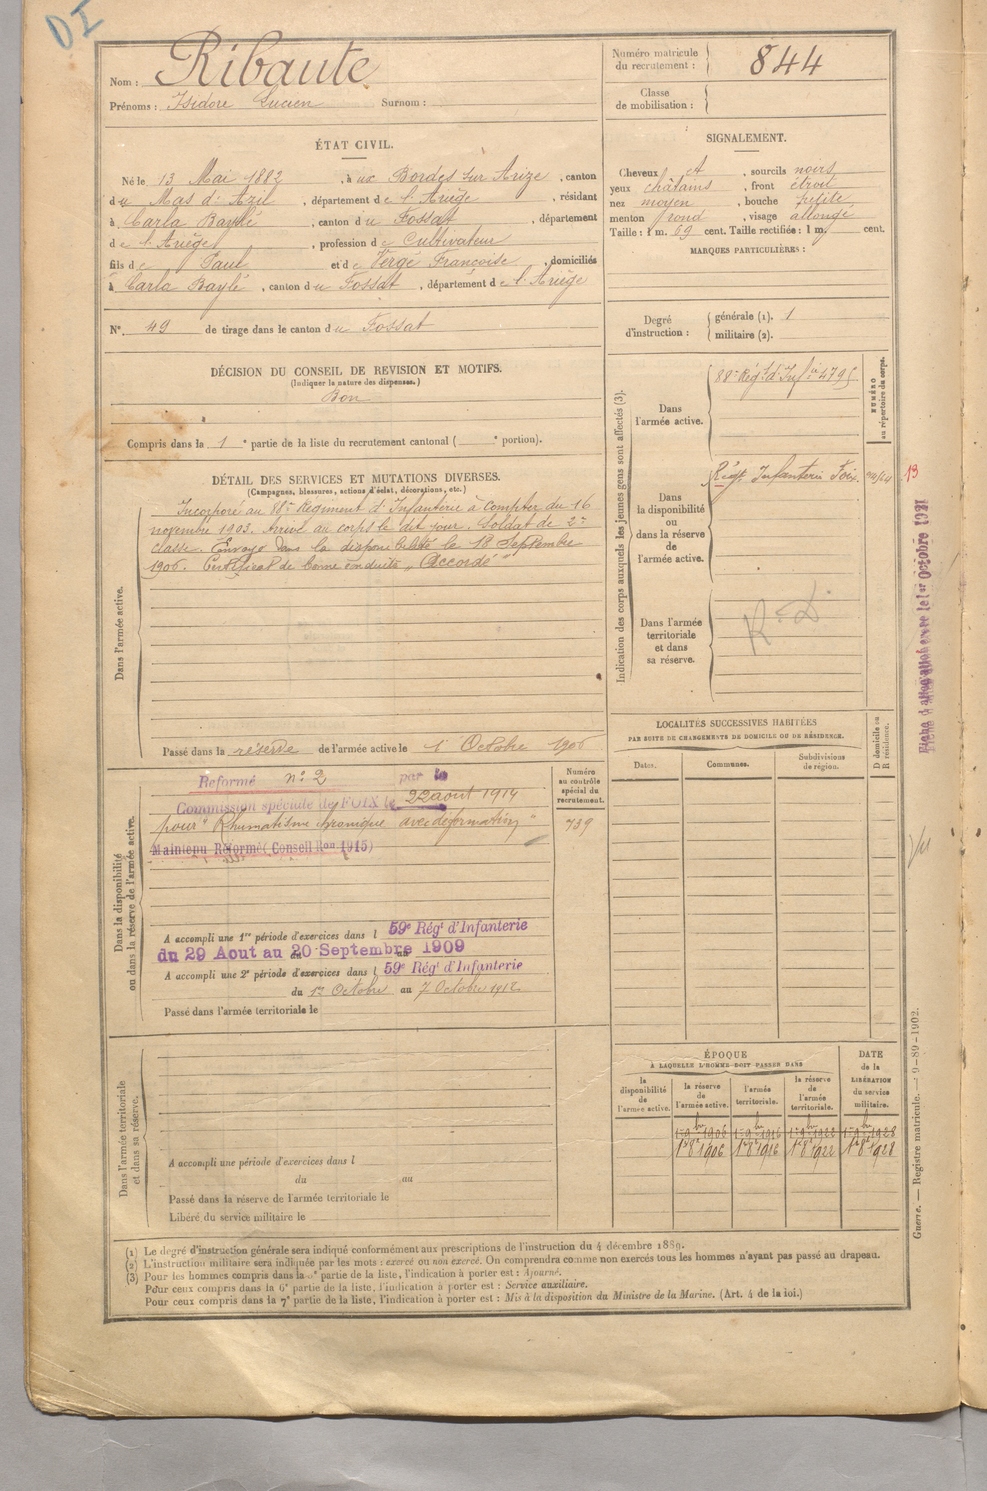 DI
Nom : Ribaute
Prénoms : Isidore Lucien Surnom :
Numéro matricule du recrutement : 844
Classe de mobilisation :
ÉTAT CIVIL.
Né le 13 Mai 1882, à ux Bordes sur Arize, canton
du Mas d'Azil, département de l'Ariège, résidant
à Carla Baylé, canton du Fossat, département
de l'Ariège, profession de Cultivateur
fils de Paul et de Vergé Françoise, domiciliés
à Carla Baylé, canton du Fossat, département de l'Ariège
N° 49 de tirage dans le canton du Fossat
SIGNALEMENT.
Cheveux et, sourcils noirs
yeux châtains, front étroit
nez moyen, bouche petite
menton rond, visage allongé
Taille : 1 m. 69 cent. Taille rectifiée : 1 m. cent.
MARQUES PARTICULIÈRES :
Degré d'instruction : générale (1). 1
militaire (2).
DÉCISION DU CONSEIL DE REVISION ET MOTIFS.
(Indiquer la nature des dispenses.)
Bon
Compris dans la 1e partie de la liste du recrutement cantonal ( e portion).
DÉTAIL DES SERVICES ET MUTATIONS DIVERSES.
(Campagnes, blessures, actions d'éclat, décorations, etc.)
Dans l'armée active.
Incorporé au 88e Régiment d'Infanterie à Compter du 16
novembre 1903. Arrivé au corps le dit jour. Soldat de 2e
classe. Envoyé dans la disponibilité le 18 Septembre
1906. Certificat de bonne conduite " Accordé "
Passé dans la réserve de l'armée active le 1er Octobre 1906
Indication des corps auxquels les jeunes gens sont affectés (3).
NUMÉRO au répertoire du corps.
Dans l'armée active.
88e Régt. d'Infie 4795
Dans la disponibilité ou dans la réserve de l'armée active.
Régt. Infanterie Foix
13
Dans l'armée territoriale et dans sa réserve.
R. D.
Fiche d'allocation
1er Octobre 1921
LOCALITÉS SUCCESSIVES HABITÉES
PAR SUITE DE CHANGEMENTS DE DOMICILE OU DE RÉSIDENCE.
Dates.
Communes.
Subdivisions de région.
D domicile ou R résidence.
Dans la disponibilité ou dans la réserve de l'armée active.
Numéro au contrôle spécial du recrutement.
739
Reformé n° 2 par la
Commission spéciale de FOIX le 22 aout 1914
pour " Rhumatisme chronique avec déformation "
Maintenu Réformé (Conseil Ron 1915)
A accompli une 1re période d'exercices dans l 59e Régt d'Infanterie
du 29 Aout au 20 Septembre 1909
A accompli une 2e période d'exercices dans l 59e Régt d'Infanterie
du Octobre au 7 Octobre 1912
Passé dans l'armée territoriale le
Dans l'armée territoriale et dans sa réserve.
A accompli une période d'exercices dans l
du au
Passé dans la réserve de l'armée territoriale le
Libéré du service militaire le
ÉPOQUE
À LAQUELLE L'HOMME DOIT PASSER DANS
la disponibilité de l'armée active.
la réserve de l'armée active.
l'armée territoriale.
la réserve de l'armée territoriale.
DATE de la LIBÉRATION du service militaire.
1er 9bre 1906 1er 9bre 1916 1er 9bre 1922 1er 9bre 1928
1er 8bre 1906 1er 8bre 1916 1er 8bre 1922 1er 8bre 1928
Guerre. — Registre matricule. — 9-89-1902.
(1) Le degré d'instruction générale sera indiqué conformément aux prescriptions de l'instruction du 4 décembre 1889.
(2) L'instruction militaire sera indiquée par les mots : exercé ou non exercé. On comprendra comme non exercés tous les hommes n'ayant pas passé au drapeau.
(3) Pour les hommes compris dans la 5e partie de la liste, l'indication à porter est : Ajourné.
Pour ceux compris dans la 6e partie de la liste, l'indication à porter est : Service auxiliaire.
Pour ceux compris dans la 7e partie de la liste, l'indication à porter est : Mis à la disposition du Ministre de la Marine. (Art. 4 de la loi.)